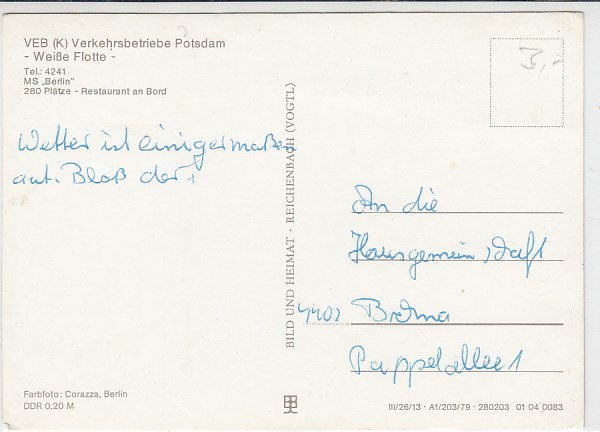 VEB (K) Verkehrsbetriebe Potsdam
- Weiße Flotte -
Tel.: 4241
MS „Berlin"
280 Plätze - Restaurant an Bord
Wetter ist einigermaßen
gut. Bloß der
BILD UND HEIMAT · REICHENBACH (VOGTL)
3,-
An die
Hausgemeinschaft
Pappelallee 1
Farbfoto: Corazza, Berlin
DDR 0,20 M
III/26/13 · A1/203/79 · 280203 01 04 0083